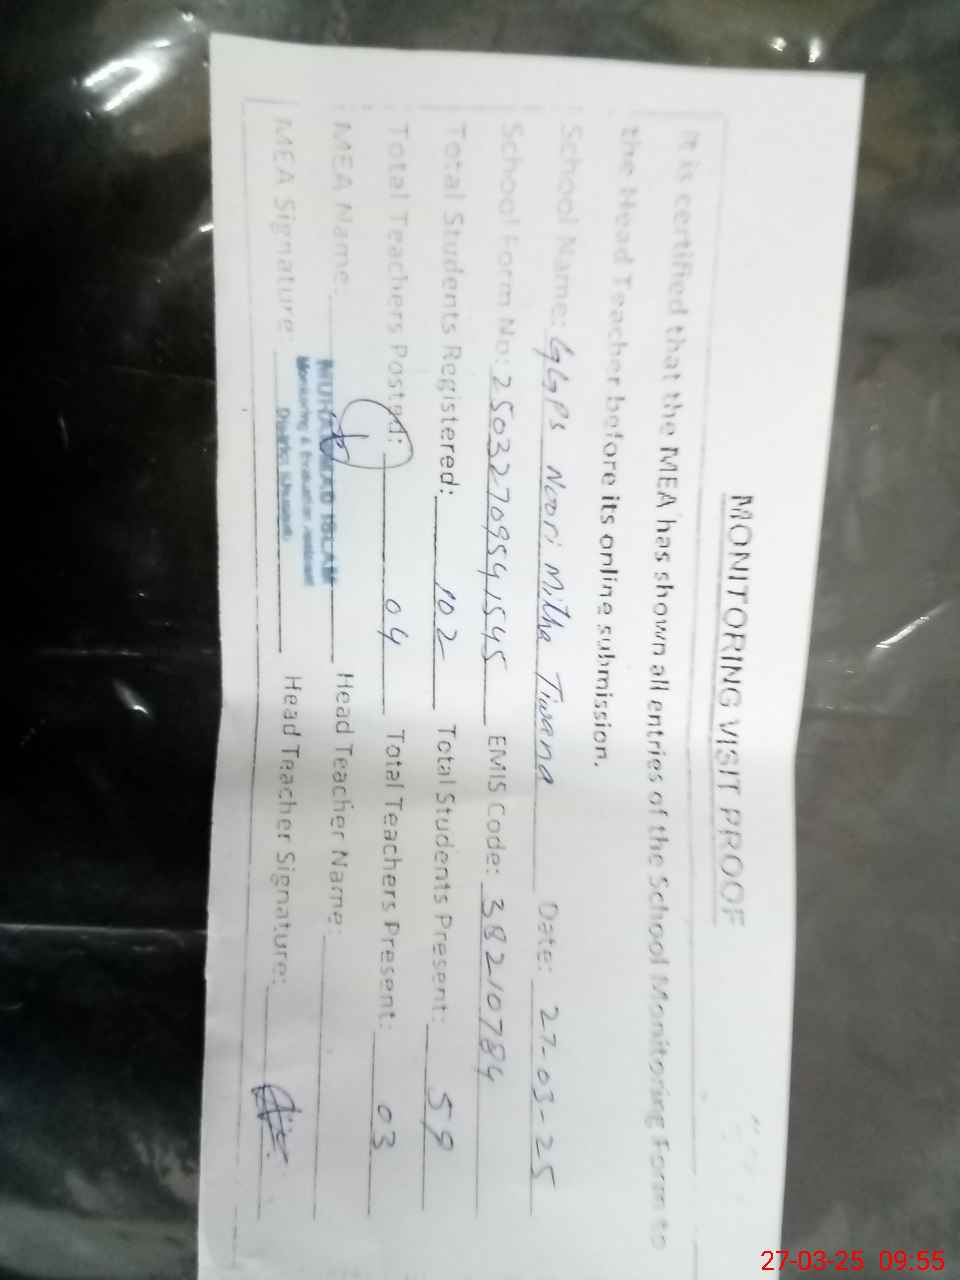 MONITORING VISIT PROOF
It is certified that the MEA has shown all entries of the School Monitoring Form to
the Head Teacher before its online submission.
School Name: GGPS Noori Mitha Tiwana Date: 27-03-25
School Form No: 25032709541545 EMIS Code: 38210784
Total Students Registered: 102 Total Students Present: 59
Total Teachers Posted: 04 Total Teachers Present: 03
MEA Name: MUHAMMAD ISLAM Head Teacher Name:
Monitoring & Evaluation Assistant
MEA Signature: Head Teacher Signature:
District
27-03-25 09:55